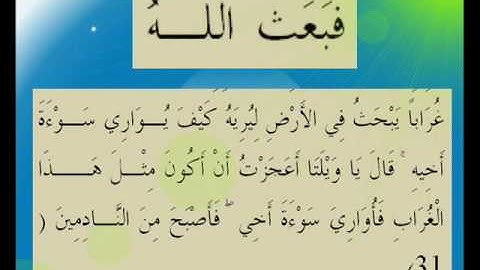 فَبَعَثَ اللَّهُ
غُرَاباً يَبْحَثُ فِي الأَرْضِ لِيُرِيَهُ كَيْفَ يُوَارِي سَوْءَةَ
أَخِيهِ ۚ قَالَ يَا وَيْلَتَا أَعَجَزْتُ أَنْ أَكُونَ مِثْلَ هَذَا
الْغُرَابِ فَأُوَارِيَ سَوْءَةَ أَخِي ۖ فَأَصْبَحَ مِنَ النَّادِمِينَ (
31)